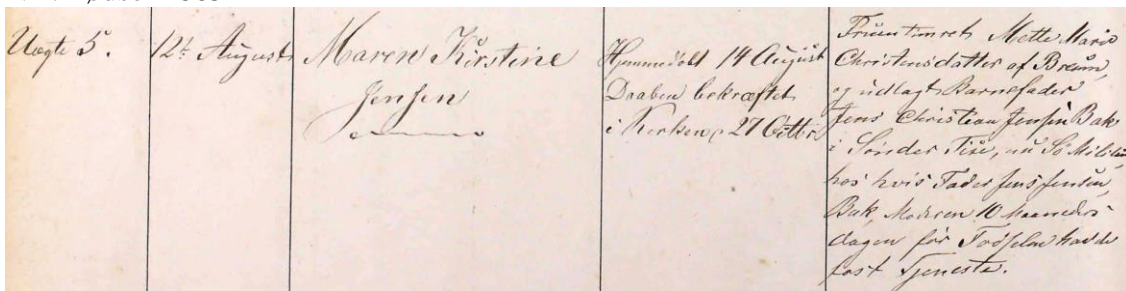 Uægte 5.
12te August
Maren Kirstine
Jensen
Hjemmedøbt 14 August
Daaben bekræftet
i Kirken, 27 Octbr
Fruentimret Mette Marie
Christensdatter af Breum,
og udlagt Barnefader
Jens Christian Jensen Bak
i Sønder Tise, nu
hos hvis Fader Jens Jensen
Bak, Moderen 10 Maaneders
dagen før Fødselen havde
fast Tjeneste.